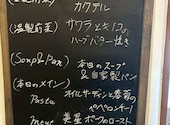 カクテル
(温製前菜) サワラときのこの
ハーブバター焼き
(Soup&Pan) 本日のスープ
&自家製パン
(本日のメイン)
Pasta オイルサーディンと春菊の
ペペロンチーノ
Meat 美星ポークのロースト